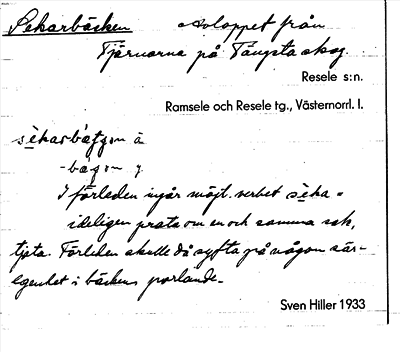 Sekarbäcken avloppet från
Tjärnarna på Tängsta skog.
Resele s:n.
Ramsele och Resele tg., Västernorrl. l.
I förleden ingår möjl. verbet sèka =
ideligen prata om en och samma sak,
tjata. Förleden skulle då syfta på någon sär-
egenhet i bäckens porlande.
Sven Hiller 1933